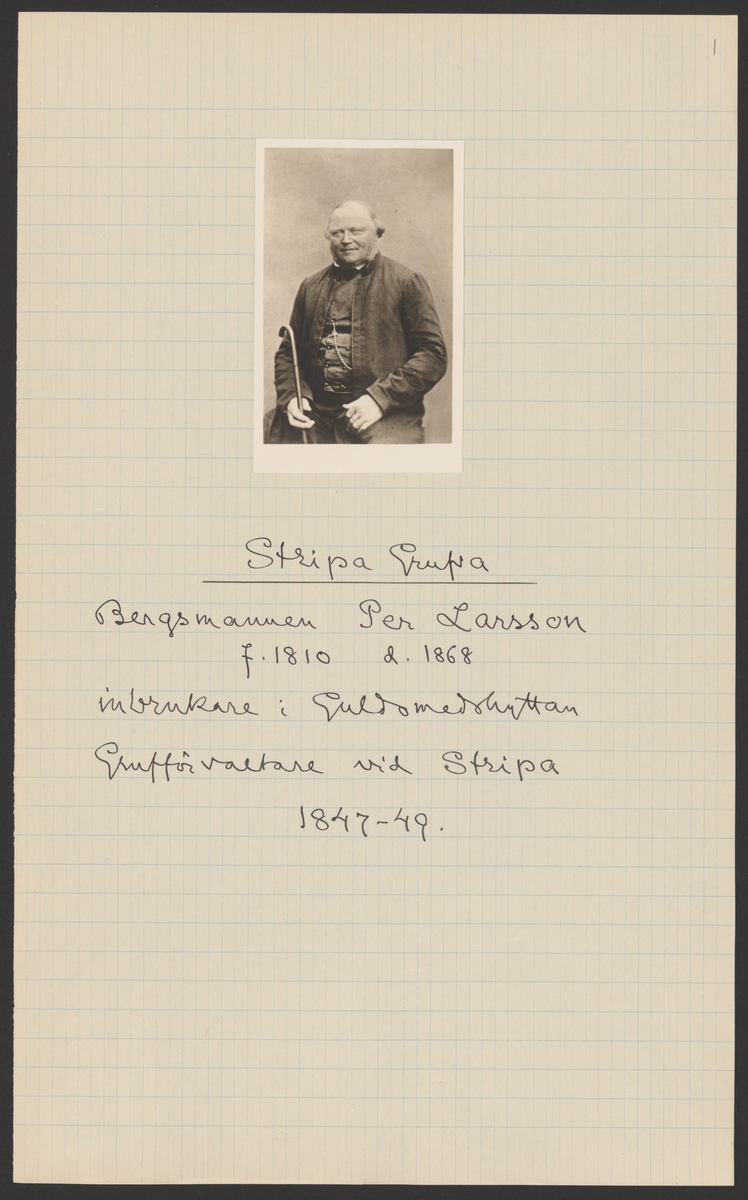 1
Stripa Grufva
Bergsmannen Per Larsson
f. 1810 d. 1868
inbrukare i Guldsmedshyttan
Grufförvaltare vid Stripa
1847-49.